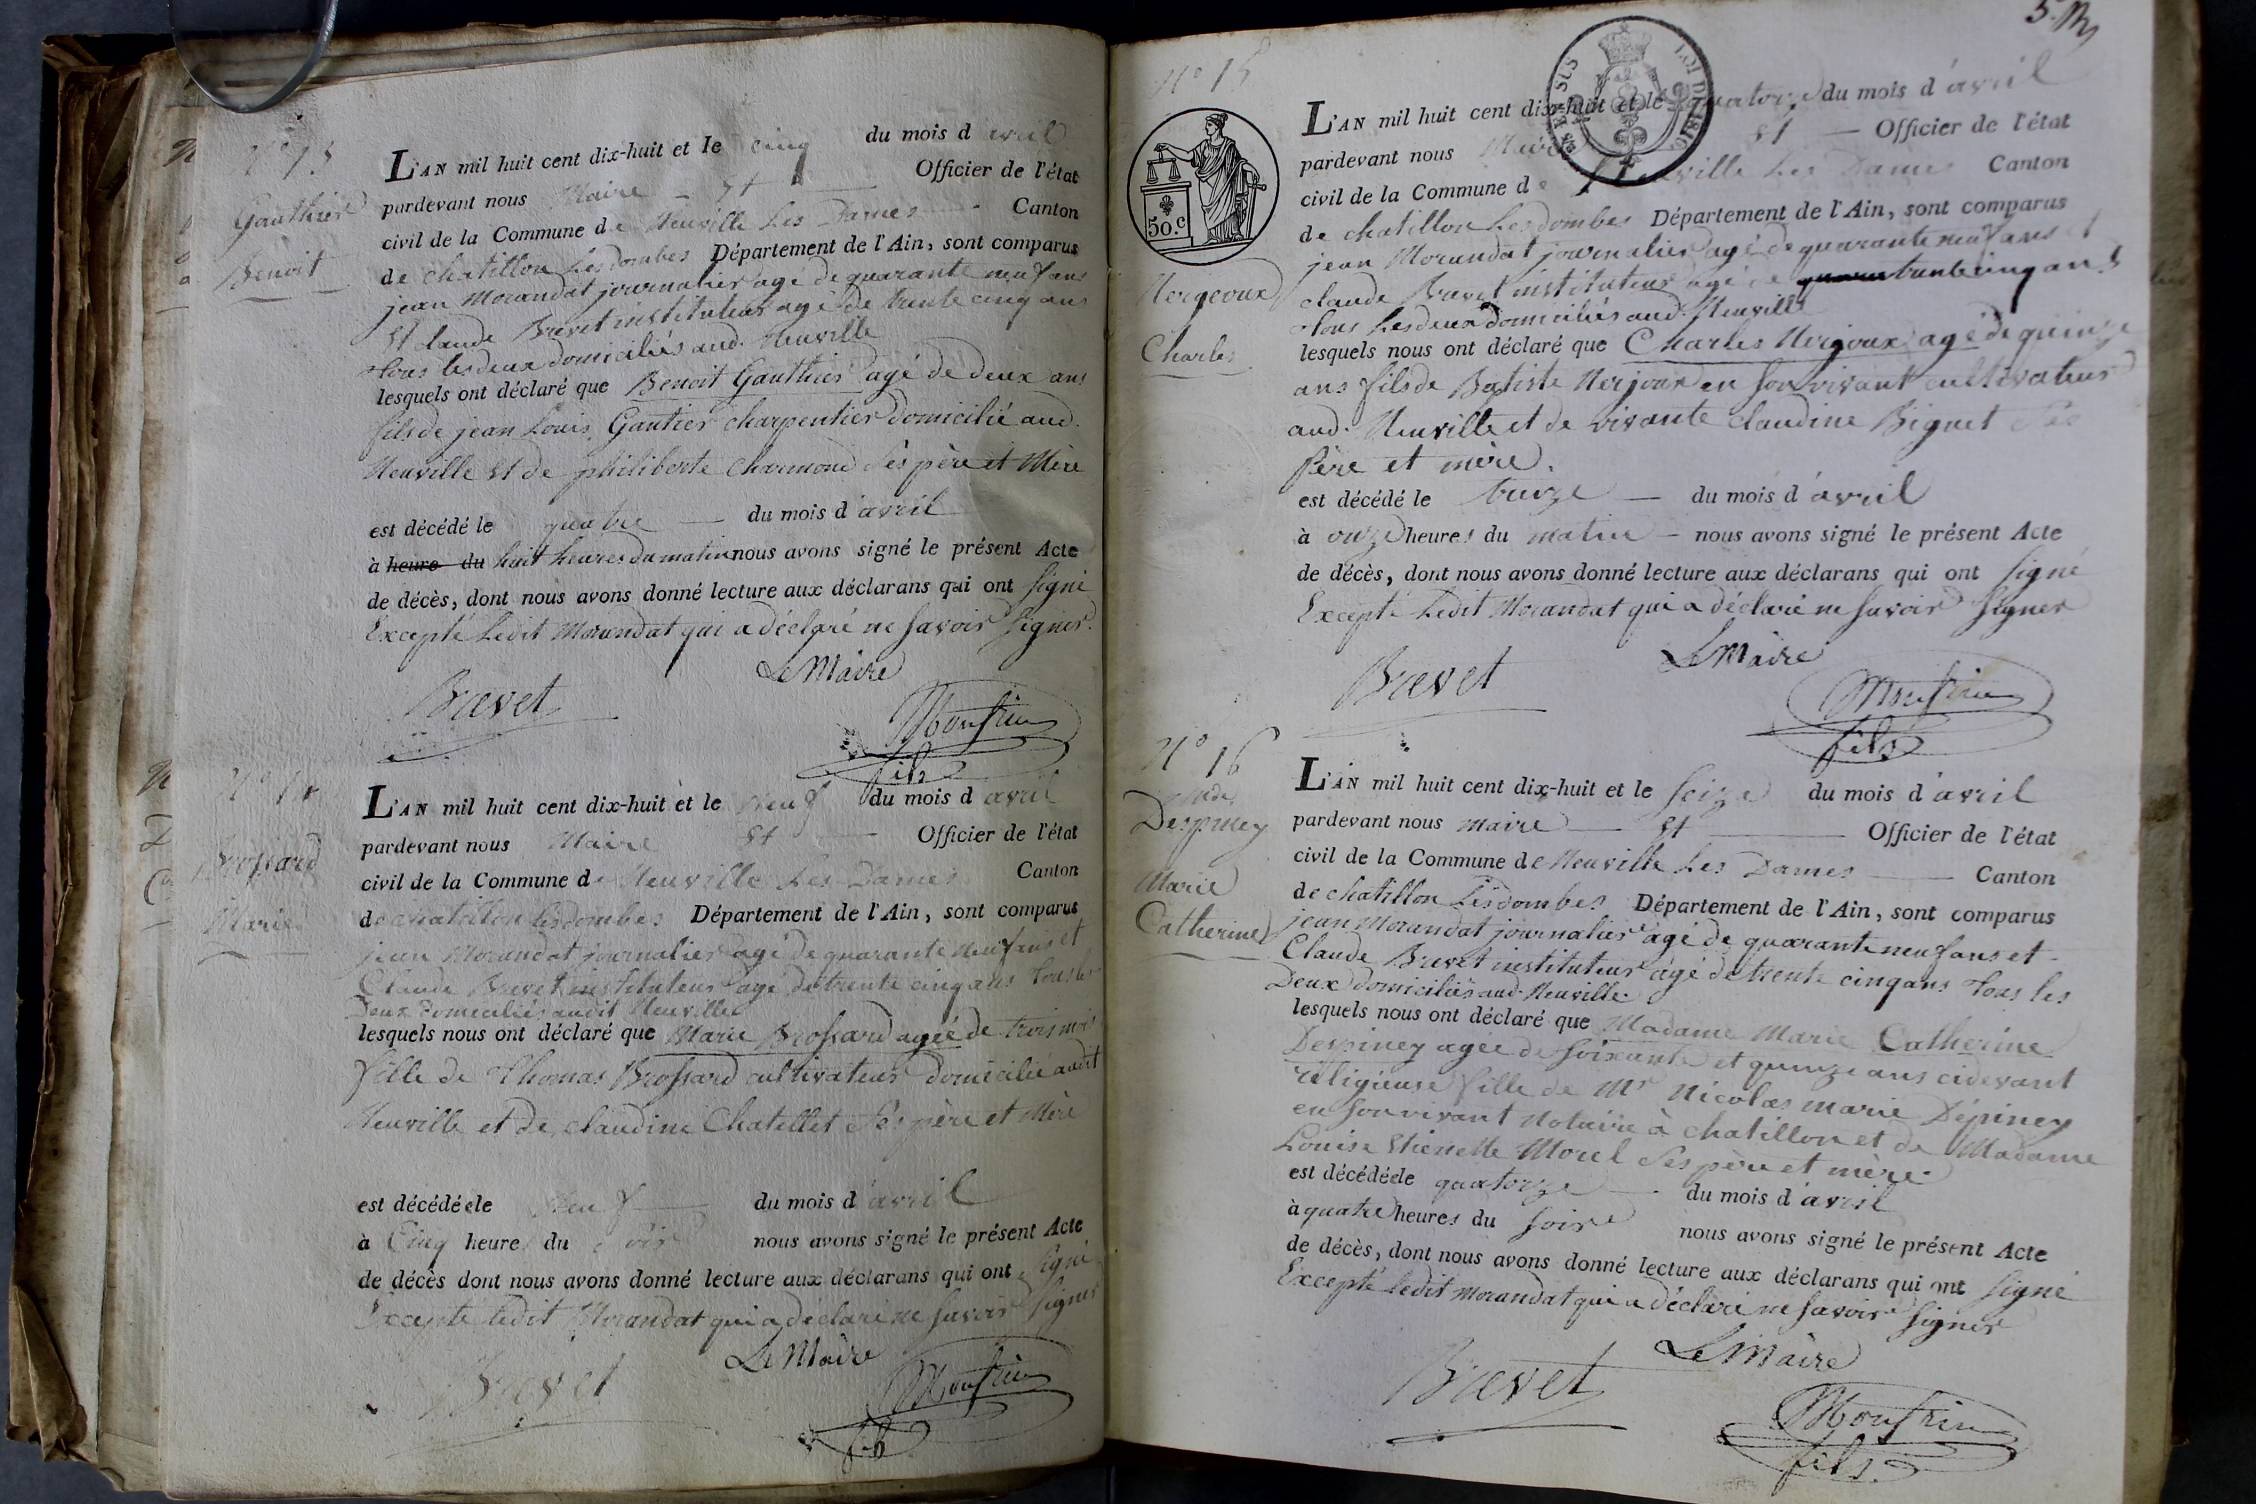 N° 13
Gauthier
Benoit
L'AN mil huit cent dix-huit et le cinq du mois d avril
pardevant nous Maire et Officier de l'état
civil de la Commune de Neuville Les Dames Canton
de chatillon Lesdombes Département de l'Ain, sont comparus
jean Morandat journalier agé de quarante neuf ans
Et claude Brevet instituteur agé de trente cinq ans
tous les deux domiciliés aud. Neuville
lesquels ont déclaré que Benoit Gauthier agé de deux ans
fils de jean Louis Gautier charpentier domicilié aud.
Neuville Et de philiberte Charmond ses père et Mère
est décédé le quatre du mois d'avril
à heure du huit heures du matin nous avons signé le présent Acte
de décès, dont nous avons donné lecture aux déclarans qui ont signé
Excepté Ledit Morandat qui a déclaré ne savoir signer.
Le Maire
Brevet
Monfrin
fils
N° 14
Brossard
Marie
L'AN mil huit cent dix-huit et le neuf du mois d avril
pardevant nous Maire Et Officier de l'état
civil de la Commune de Neuville Les Dames Canton
de chatillon lesdombes Département de l'Ain, sont comparus
jean Morandat journalier agé de quarante neuf ans et
Claude Brevet instituteur agé de trente cinq ans tous les
Deux domiciliés audit Neuville
lesquels nous ont déclaré que Marie Brossard agée de trois mois
fille de Thomas Brossard cultivateur domicilié audit
Neuville et de claudine Chatellet ses père et Mère
est décédée le neuf du mois d'avril
à Cinq heure du soir nous avons signé le présent Acte
de décès dont nous avons donné lecture aux déclarans qui ont signé
Excepté ledit Morandat qui a déclaré ne savoir signer
Le Maire
Brevet
Monfrin
fils
N° 15
50.c
Nergeoux
Charles
L'AN mil huit cent dix-huit et le quatorze du mois d'avril
pardevant nous Maire Et Officier de l'état
civil de la Commune de Neuville Les Dames Canton
de chatillon Lesdombes Département de l'Ain, sont comparus
jean Morandat journalier agé de quarante neuf ans Et
claude Brevet instituteur agé de trente cinq ans
tous Les deux domiciliés aud. Neuville
lesquels nous ont déclaré que Charles Nerjoux agé de quinze
ans fils de Batiste Nerjoux en son vivant cultivateur
aud. Neuville et de vivante claudine Biguet ses
père et mère.
est décédé le treize du mois d'avril
à onze heures du matin nous avons signé le présent Acte
de décès, dont nous avons donné lecture aux déclarans qui ont signé
Excepté Ledit Morandat qui a déclaré ne savoir signer
Le Maire
Brevet
Monfrin
fils
N° 16
Despiney
Marie
Catherine
L'AN mil huit cent dix-huit et le seize du mois d'avril
pardevant nous maire Et Officier de l'état
civil de la Commune de Neuville Les Dames Canton
de chatillon Lesdombes Département de l'Ain, sont comparus
jean Morandat journalier agé de quarante neuf ans et
Claude Brevet instituteur agé de trente cinq ans tous les
Deux domiciliés aud. Neuville
lesquels nous ont déclaré que Madame Marie Catherine
Despiney agée de soixante et quinze ans cidevant
religieuse fille de Mr Nicolas marie Dépiney
en son vivant Notaire à chatillon et de Madame
Louise Morel ses père et mère.
est décédée le quatorze du mois d'avril
à quatre heures du soire nous avons signé le présent Acte
de décès, dont nous avons donné lecture aux déclarans qui ont signé
Excepté ledit Morandat qui a déclaré ne savoir signer
Le Maire
Brevet
Monfrin
fils